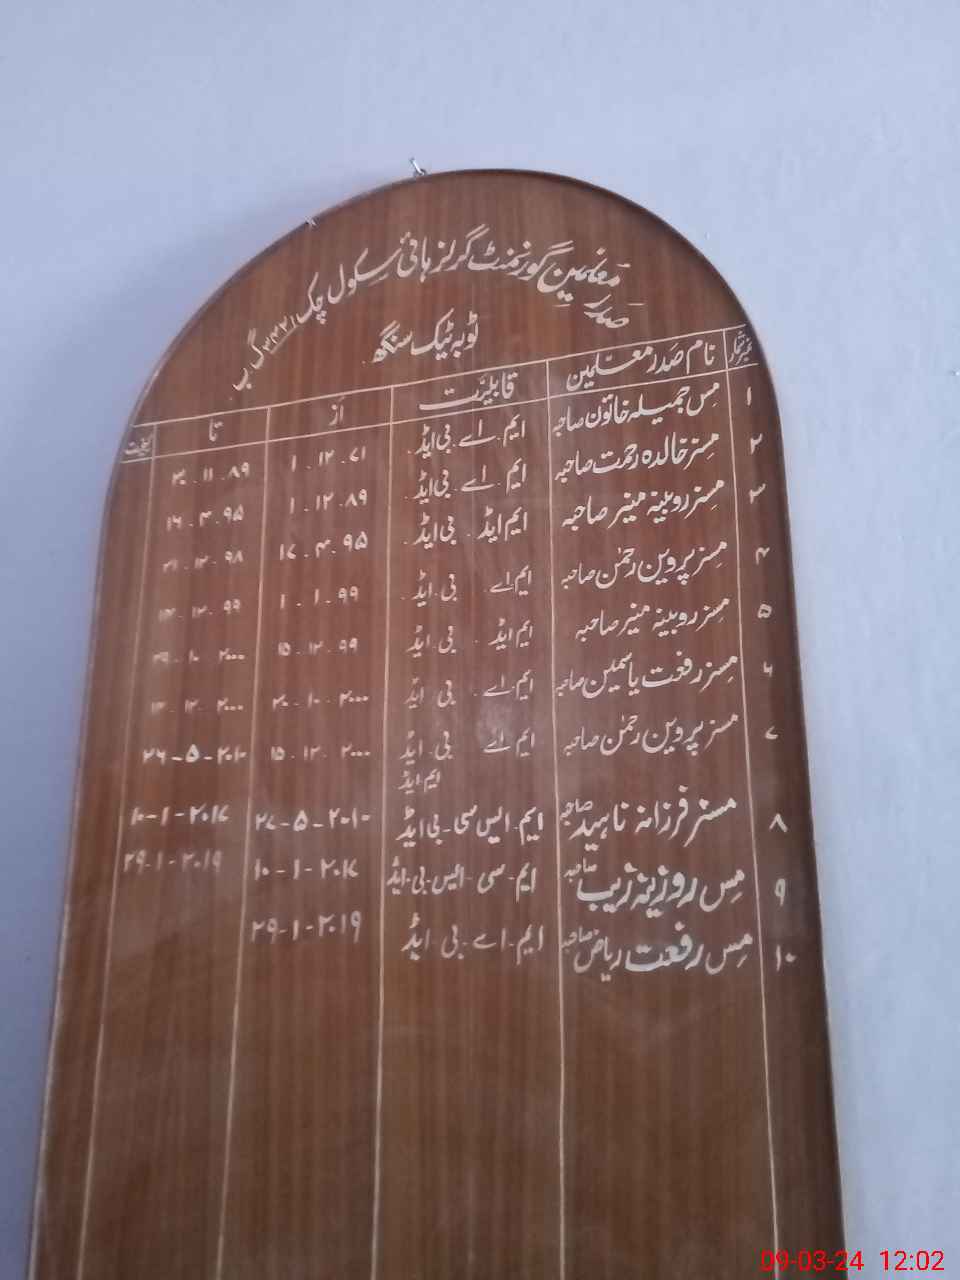 صدر معلمین گورنمنٹ گرلز ہائی سکول چک ۳۳۲ گ ب
ٹوبہ ٹیک سنگھ
نمبر شمار نام صدر معلمین قابلیت از تا کیفیت
۱ مس جمیلہ خاتون صاحبہ ایم۔اے۔بی ایڈ ۱۔۱۲۔۷۱ ۳۰۔۱۱۔۸۹
۲ مسز خالدہ رحمت صاحبہ ایم اے بی ایڈ ۱۔۱۲۔۸۹ ۱۶۔۴۔۹۵
۳ مسز روبینہ منیر صاحبہ ایم ایڈ۔بی ایڈ ۱۷۔۴۔۹۵ ۳۱۔۱۲۔۹۸
۴ مسز پروین رحمٰن صاحبہ ایم اے۔بی۔ایڈ ۱۔۱۔۹۹ ۱۴۔۱۲۔۹۹
۵ مسز روبینہ منیر صاحبہ ایم ایڈ۔بی۔ایڈ ۱۵۔۱۲۔۹۹ ۲۹۔۱۰۔۲۰۰۰
۶ مسز رفعت یاسمین صاحبہ ایم۔اے۔بی۔ایڈ ۳۰۔۱۰۔۲۰۰۰ ۱۴۔۱۲۔۲۰۰۰
۷ مسز پروین رحمٰن صاحبہ ایم اے بی۔ایڈ ۱۵۔۱۲۔۲۰۰۰ ۲۶-۵-۲۰۱۰
ایم ایڈ
۸ مسز فرزانہ ناہید صاحبہ ایم۔ایس سی۔بی ایڈ ۲۷-۵-۲۰۱۰ ۱۰-۱-۲۰۱۷
۹ مس روزینہ زیب صاحبہ ایم-سی-ایس-بی-ایڈ ۱۰-۱-۲۰۱۷ ۲۹-۱-۲۰۱۹
۱۰ مس رفعت ریاض صاحبہ ایم-اے-بی-ایڈ ۲۹-۱-۲۰۱۹
09-03-24 12:02